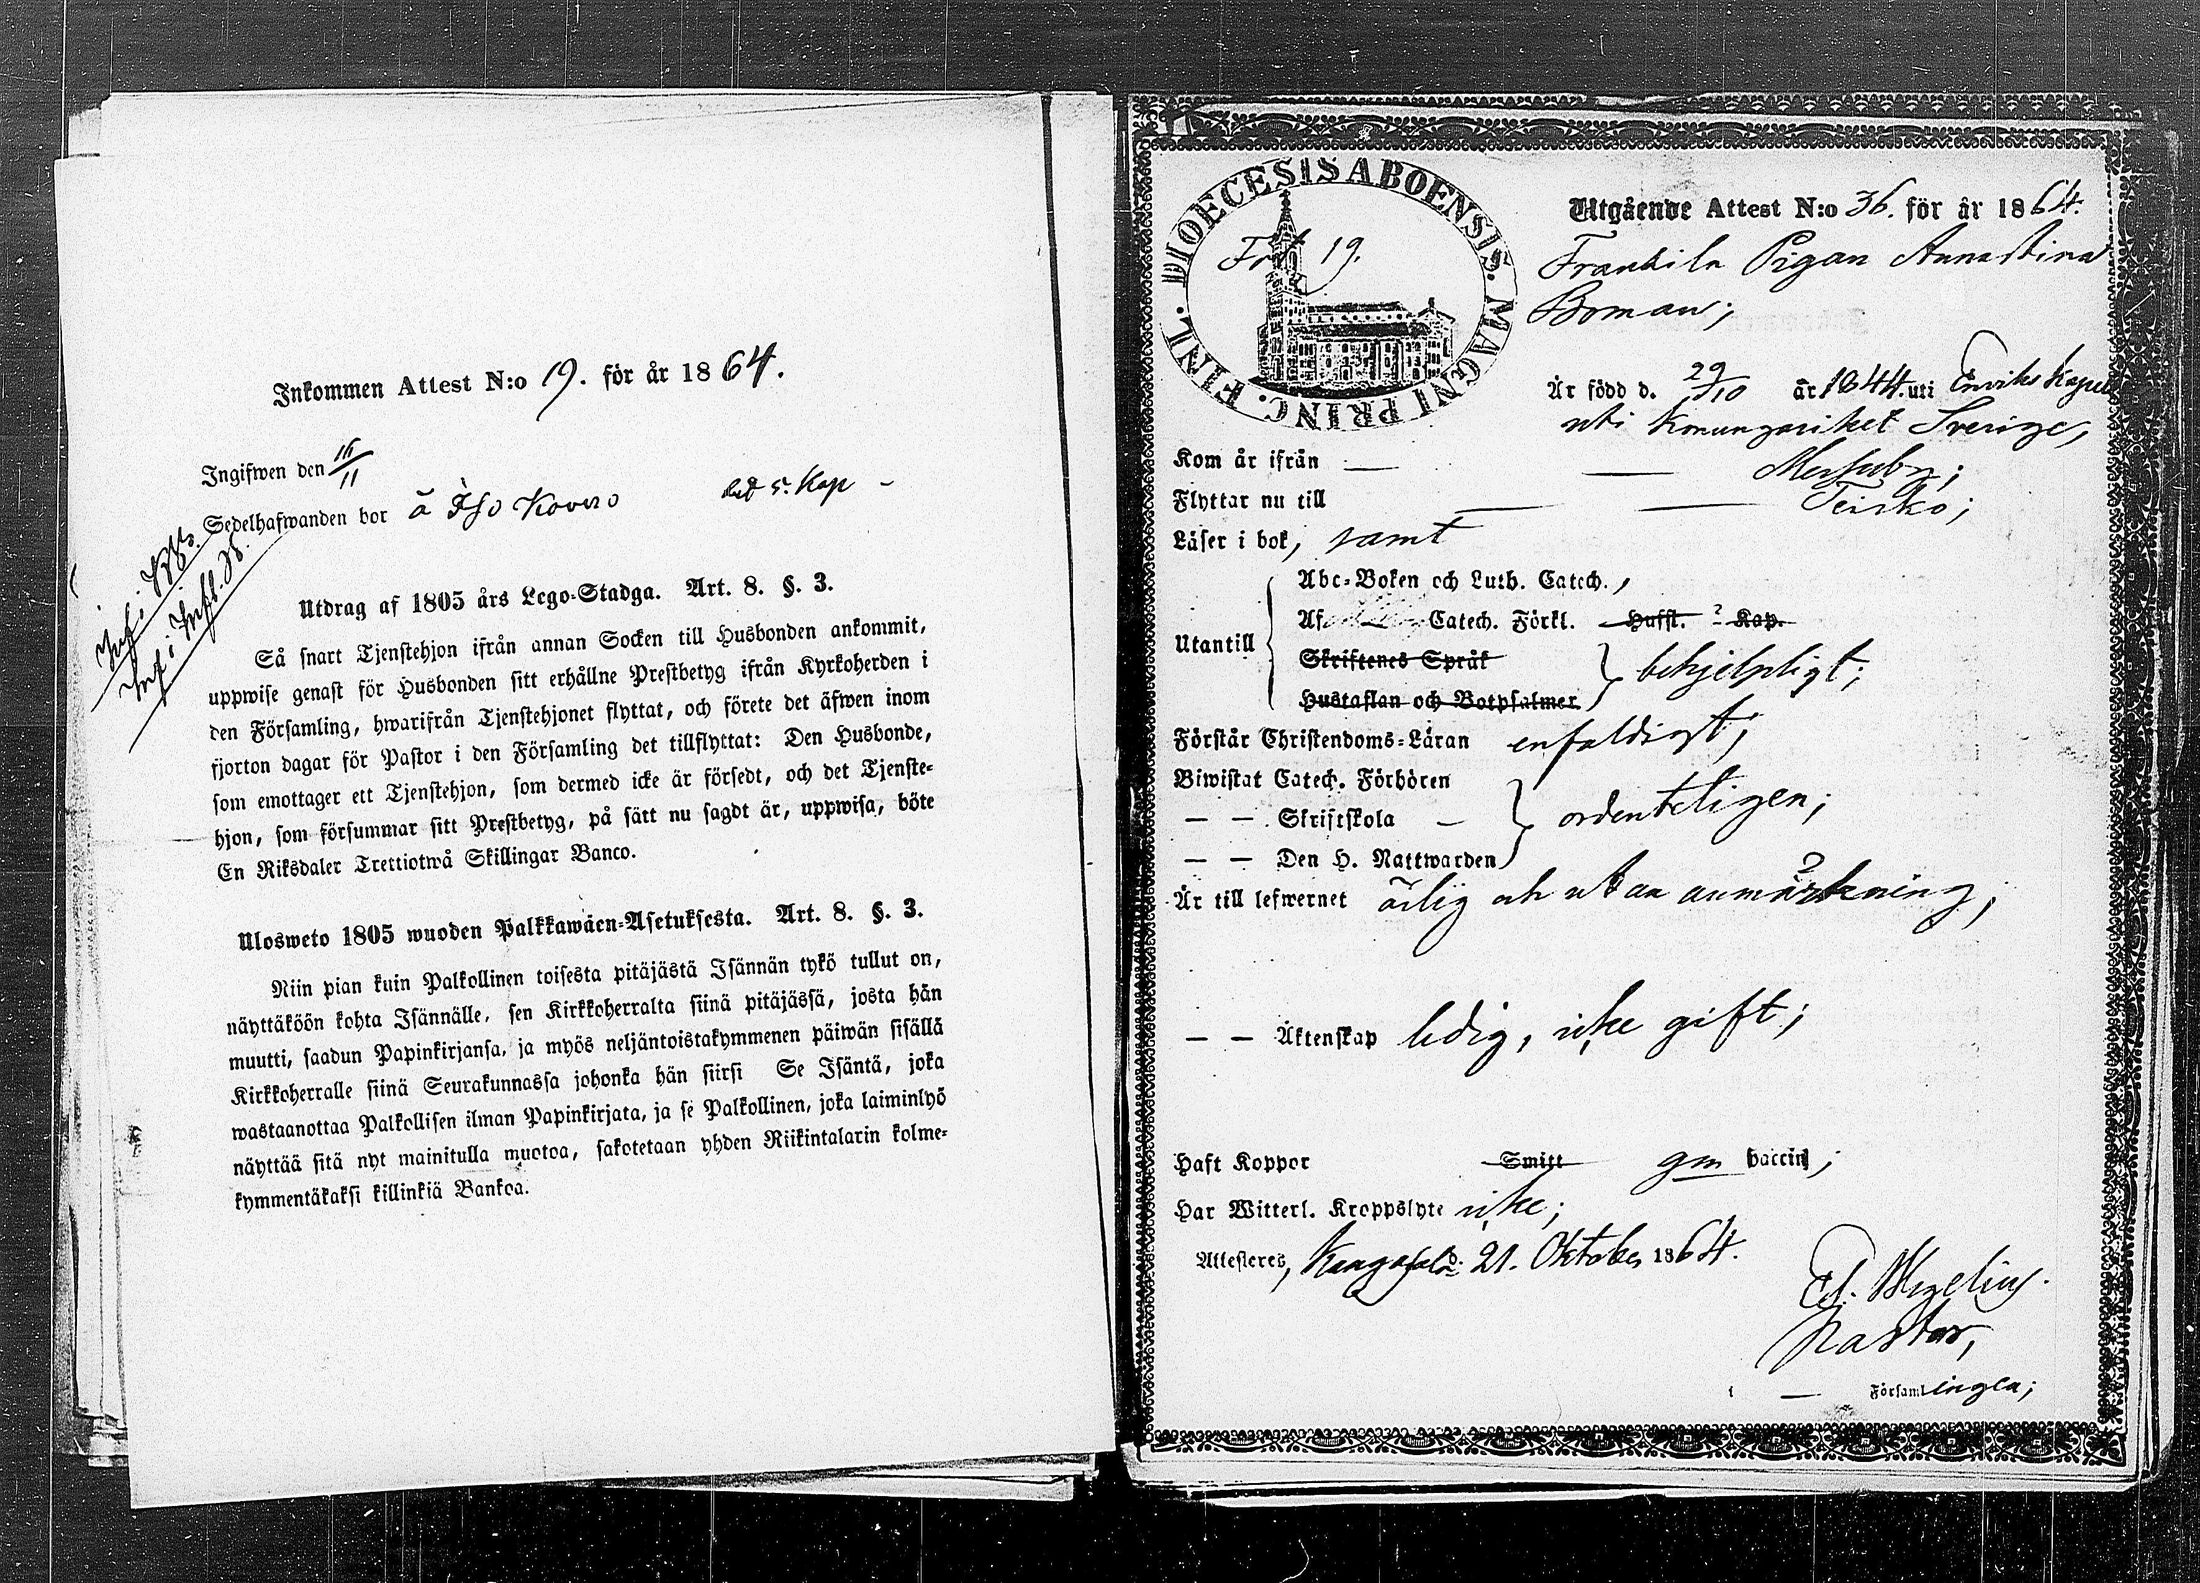 Inkommen Attest N:o 19. för år 1864.
Ingifwen den 16/11
Sedelhafwanden bor å Iso Kovero
Utdrag af 1805 års Lego-Stadga. Art. 8. §. 3.
Så snart Tjenstehjon ifrån annan Socken till Husbonden ankommit,
uppwise genast för Husbonden sitt erhållne Prestbetyg ifrån Kyrkoherden i
den Församling, hwarifrån Tjenstehjonet flyttat, och förete det äfwen inom
fjorton dagar för Pastor i den Församling det tillflyttat: Den Husbonde,
som emottager ett Tjenstehjon, som dermed icke är försedt, och det Tjenste-
hjon, som försummar sitt Prestbetyg, på sätt nu sagdt är, uppwisa, böte
En Riksdaler Trettiotwå Skillingar Banco.
Ulosweto 1805 wuoden Palkkawäen-Asetuksesta. Art. 8. §. 3.
Niin pian kuin Palkollinen toisesta pitäjästä Isännän tykö tullut on,
näyttäköön kohta Isännälle, sen Kirkkoherralta siinä pitäjässä, josta hän
muutti, saadun Papinkirjansa, ja myös neljäntoistakymmenen päiwän sisällä
Kirkkoherralle siinä Seurakunnassa johonka hän siirsi Se Isäntä, joka
wastaanottaa Palkollisen ilman Papinkirjata, ja se Palkollinen, joka laiminlyö
näyttää sitä nyt mainitulla muotoa, sakotetaan yhden Riikintalarin kolme-
kymmentäkaksi killinkiä Bankoa.
DIOECESIS ABOENSIS. MAGNI PRINC. FINL.
19.
Utgående Attest N:o 36. för år 1864.
Frankila Pigan Annastina
Boman;
Är född d. 29/10 år 1844. uti Enviks Kapell
uti Konungariket Sverige,
Kom år ifrån — —
Flyttar nu till — — Teisko;
Läser i bok, samt
Utantill
Abc-Boken och Luth. Catech.,
Af Catech. Förkl. Hufst. 2 Kap.
Skriftenes Språk
behjelpligt;
Hustaflan och Botpsalmer
Förstår Christendoms-Läran enfaldigt;
Biwistat Catech. Förhören
— — Skriftskola — ordenteligen;
— — Den H. Nattwarden
Är till lefwernet ärlig och utan anmärkning;
— — Äktenskap ledig, icke gift;
Haft Koppor Smitt gm vaccin;
Har Witterl. Kroppslyte icke;
Attesteres, Kangasala d. 21. Oktober 1864.
Pastor,
i — Församlingen;